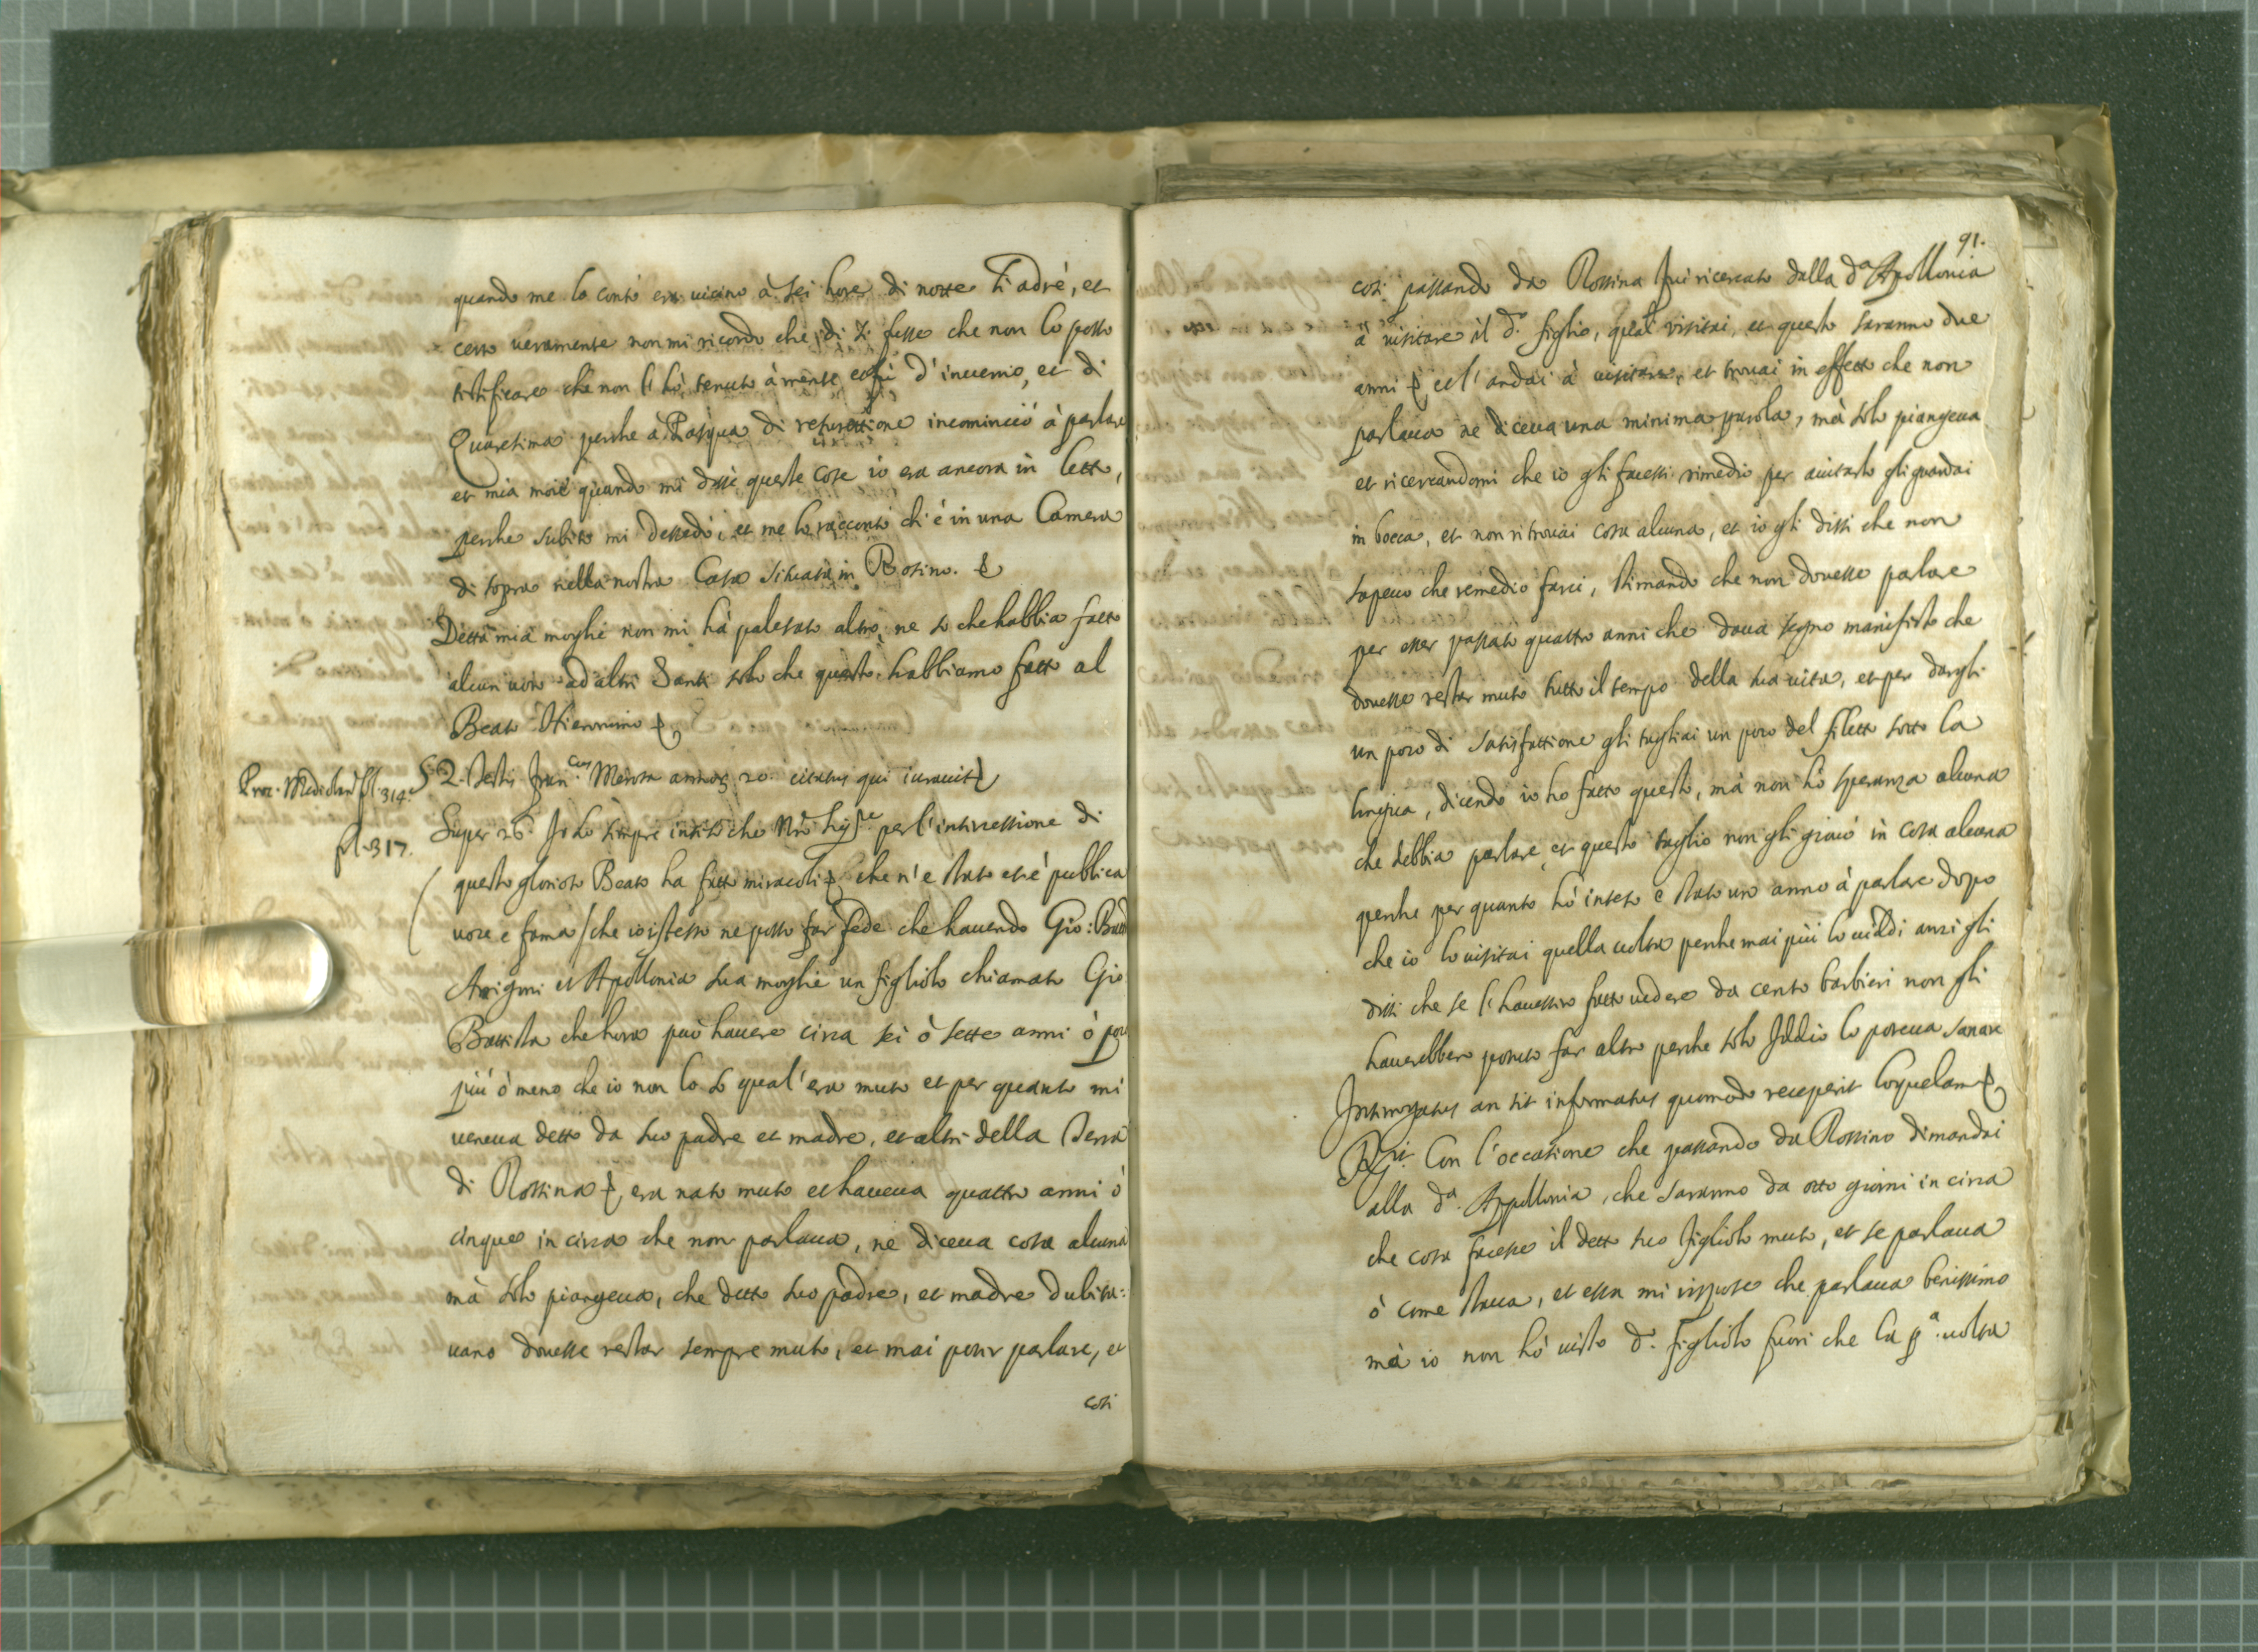 quando me lo contò era vicino à sei hore di notte li adrè, et
certo ueramente non mi ricordo che dì fusse che non lo posso
testificare che non l'hò tenuto à mente, e fù d'inuerno, et di
Quaresima perche à Pasqua di resurettione incominciò à parlare
et mia moie quando mi disse queste cose io era ancora in letto,
perche subito mi dessedò, et me lo raccontò ch'è in una Camera
di sopra nella nostra Casa situata in Rosino.
Detta mia moglie non mi hà palesato altro, ne so che habbia fatto
alcun uoto ad altri Santi solo che questo habbiamo fatto al
Beato Hieronimo
Proc. Mediolan. fol. 314.
2. Testis Fran.cus annor. 20. citatus qui iurauit
fol. 317.
Super 26. Io hò sempre inteso che per l'intercessione di
questo glorioso Beato ha fatto miracoli che n'è stato et è publica
uoce e fama che io istesso ne posso far fede che hauendo Gio: Batt
Arigoni et Apollonia sua moglie un figliolo chiamato Gio
Battista che hora può hauere circa sei ò sette anni ò poco
più ò meno che io non lo so qual'era muto et per quanto mi
ueneua detto da suo padre et madre, et altri della Terra
di Rossina era nato muto et haueua quattro anni ò
cinque in circa che non parlaua, ne diceua cosa alcuna
mà solo piangeua, che detto suo padre, et madre dubita:
uano douesse restar sempre muto, et mai poter parlare, et
cosi
91.
cosi passando da Rossina fui ricercato dalla d.a Apollonia
à visitare il d.o figlio, qual visitai, et questo saranno due
anni et l'andai à uisitare, et trouai in effetto che non
parlaua ne diceua una minima parola, mà solo piangeua
et ricercandomi che io gli facessi rimedio per aiutarlo gli guardai
in bocca, et non ritrouai cosa alcuna, et io gli dissi che non
sapeuo che remedio farci, stimando che non douesse parlare
per esser passato quattro anni che daua segno manifesto che
douesse restar muto tutto il tempo della sua uita, et per dargli
un poco di satisfattione gli tagliai un poco del filetto sotto la
lingua, dicendo io ho fatto questo, mà non hò speranza alcuna
che debbia parlare, et questo taglio non gli giouò in cosa alcuna
perche per quanto hò inteso è stato un anno à parlare dopo
che io lo uisitai quella uolta perche mai più lo uiddi anzi gli
dissi che se l'hauessero fatto uedere da cento barbieri non gli
hauerebbero potuto far altro perche solo Iddio lo poteua sanare
Interrogatus an sit informatus quomodo receperit loquelam
R.it Con l'occasione che passando da Rossino dimandai
alla d.a Appollonia, che saranno da otto giorni in circa
che cosa facesse il detto suo figliolo muto, et se parlaua
ò come staua, et essa mi rispose che parlaua benissimo
mà io non hò uisto d.o figliolo fuori che la p.a uolta